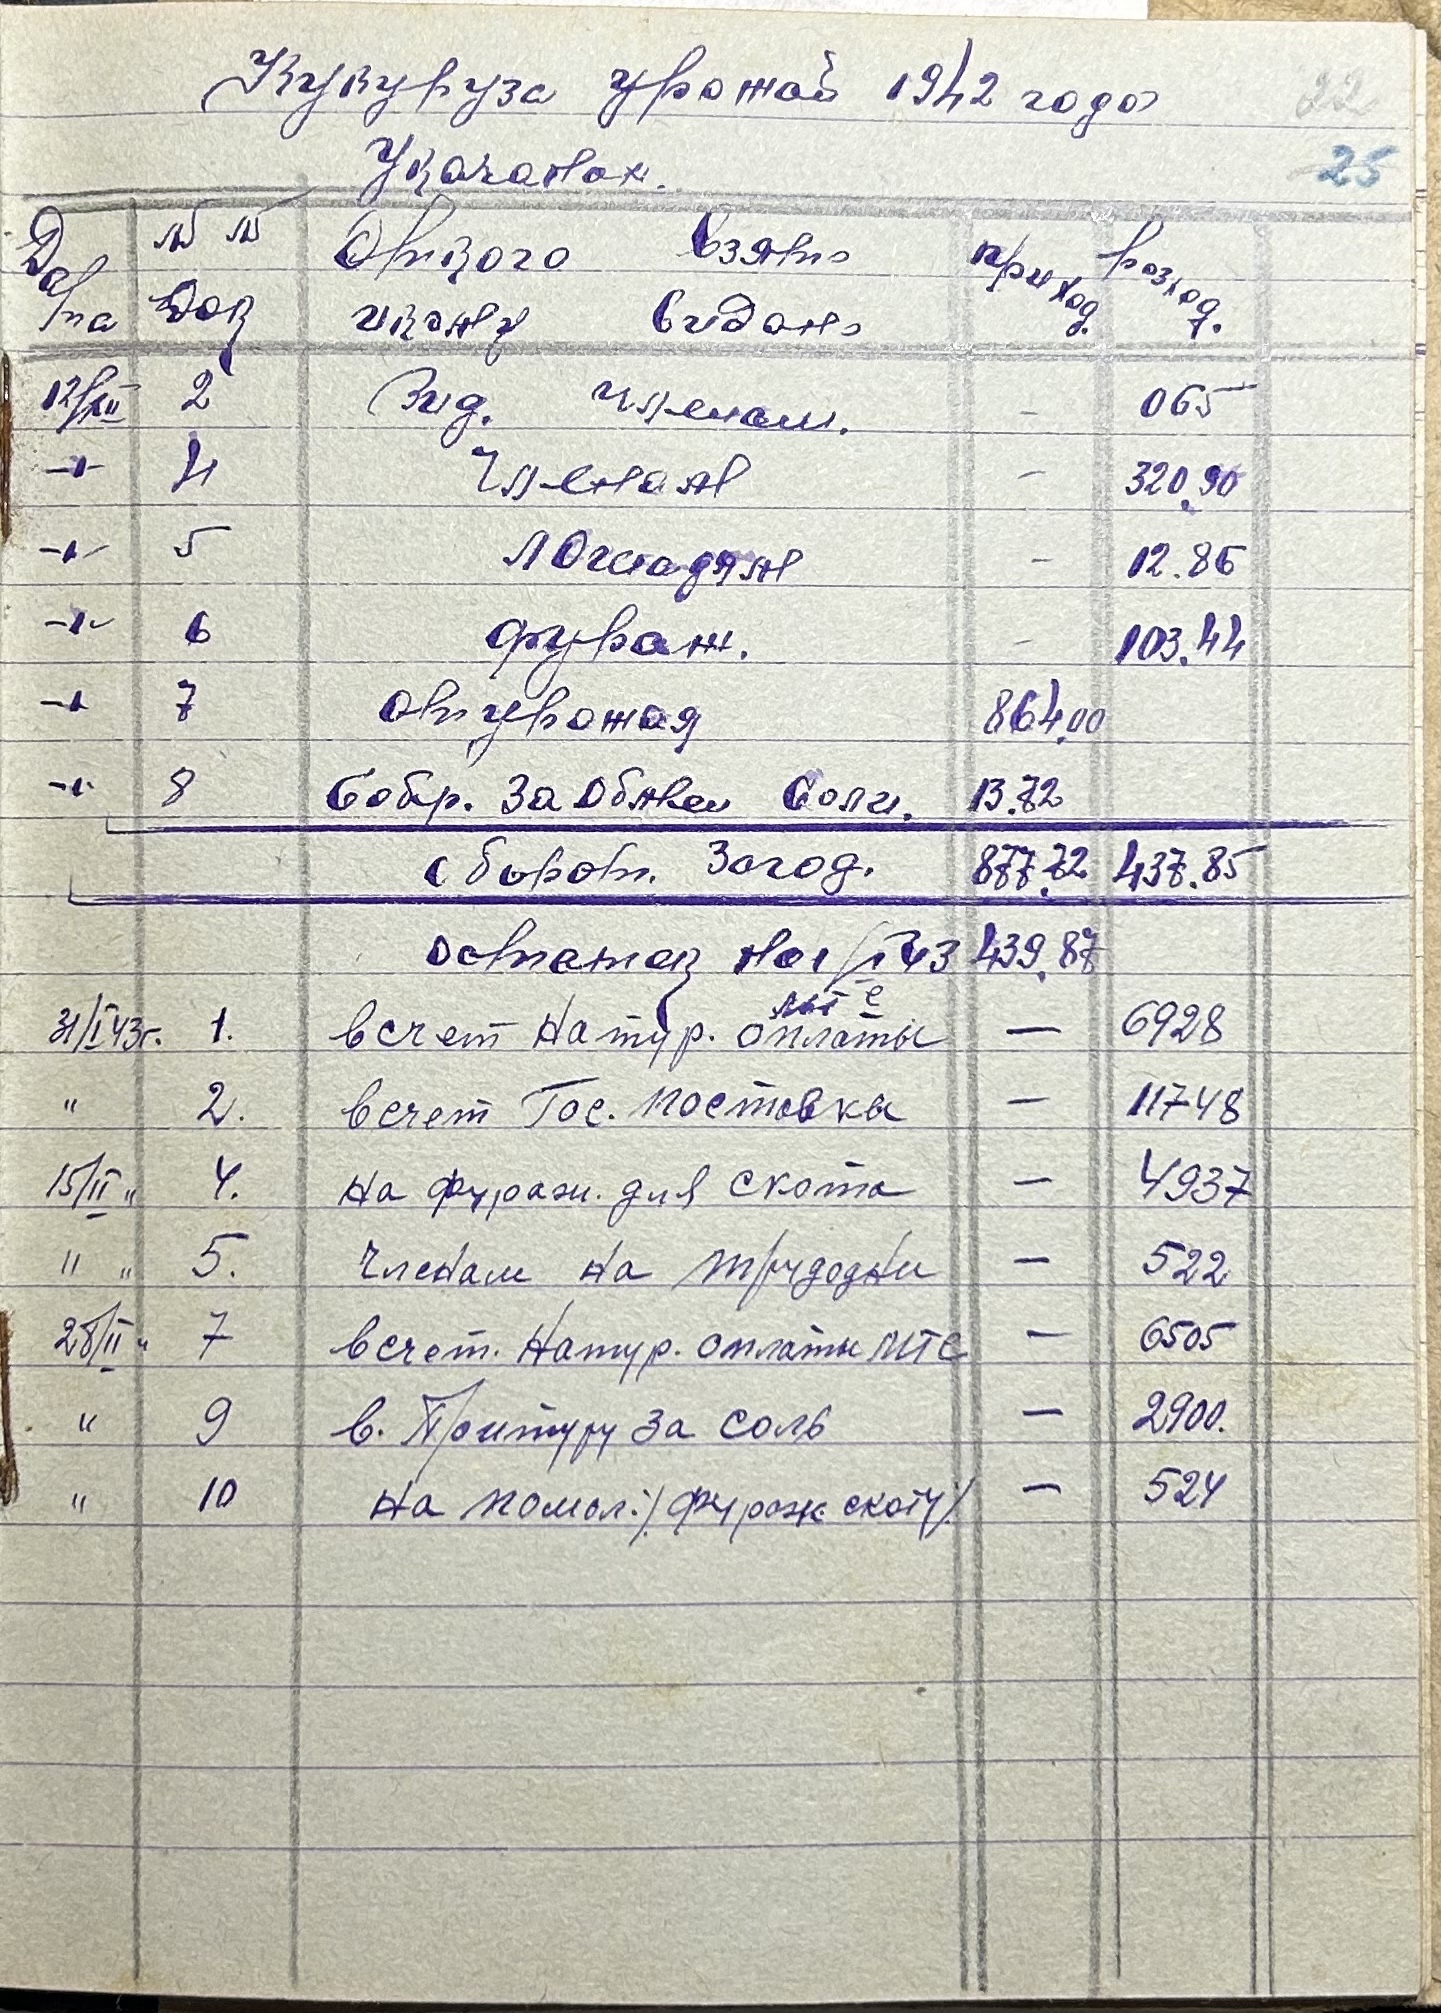 Кукуруза урожай 1942 года
22
Укачанах.
25
Дата №№ Док Откого Взято приход. розход.
икому Видано
12/XII 2 Вид. членам. - 065
-"- 4 Членам - 320.90
-"- 5 Лошадям - 12.86
-"- 6 фураж. - 103.44
-"- 7 от урожая 864.00
-"- 8 за обмен Соли. 13.72
Оборот. За год. 877.72 437.85
Остаток на 1/I 43 439.87
31/I 43г. 1. в счет Натур. оплаты МТС — 6928
" 2. в счет Гос. поставки — 11748
15/II " 4. на фураж. для скота — 4937
" " 5. Членам на трудодни — 522
28/II " 7 в счет. Натур. оплаты МТС — 6505
" 9 в. за соль — 2900.
" 10 на помол ·/. фураж скоту/. — 524